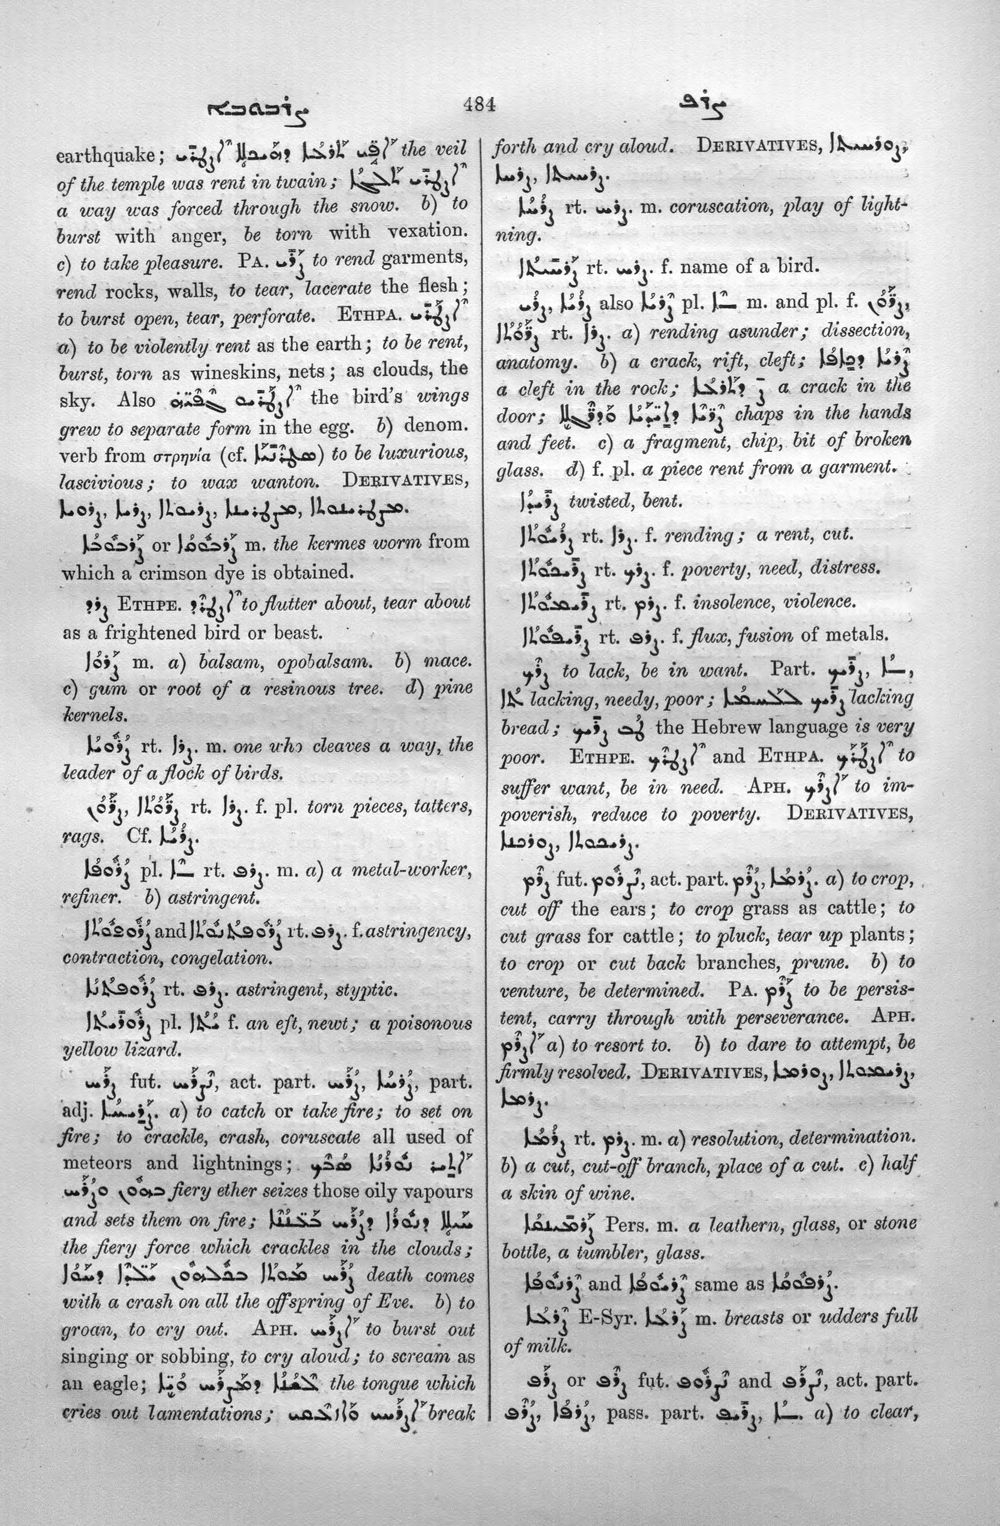 ܨܪܒܘܒܐ 484 ܨܪܦ
earthquake; the veil
of the temple was rent in twain;
a way was forced through the snow. b) to
burst with anger, be torn with vexation.
c) to take pleasure. PA. ܨܪܝ to rend garments,
rend rocks, walls, to tear, lacerate the flesh;
to burst open, tear, perforate. ETHPA. ܐܨܛܪܝ
a) to be violently rent as the earth; to be rent,
burst, torn as wineskins, nets; as clouds, the
sky. Also the bird's wings
grew to separate form in the egg. b) denom.
verb from στρηνία (cf. ) to be luxurious,
lascivious; to wax wanton. DERIVATIVES,
ܨܪܘܝܐ, ܨܪܝܐ, ܨܪܝܘܬܐ, ܡܨܛܪܝܢܐ, ܡܨܛܪܝܢܘܬܐ.
ܨܪܒܘܒܐ or m. the kermes worm from
which a crimson dye is obtained.
ܨܪܕ ETHPE. ܐܨܛܪܕ to flutter about, tear about
as a frightened bird or beast.
ܨܪܘܐ m. a) balsam, opobalsam. b) mace.
c) gum or root of a resinous tree. d) pine
kernels.
ܨܪܘܝܐ rt. ܨܪܐ. m. one who cleaves a way, the
leader of a flock of birds.
rt. ܨܪܐ. f. pl. torn pieces, tatters,
rags. Cf. ܨܪܝܐ.
ܨܪܘܦܐ pl. rt. ܨܪܦ. m. a) a metal-worker,
refiner. b) astringent.
ܨܪܘܦܘܬܐ and ܨܪܘܦܬܢܘܬܐ rt. ܨܪܦ. f. astringency,
contraction, congelation.
ܨܪܘܦܬܢܐ rt. ܨܪܦ. astringent, styptic.
ܨܪܘܪܝܬܐ pl. f. an eft, newt; a poisonous
yellow lizard.
ܨܪܚ fut. ܢܨܪܚ, act. part. ܨܪܚ, ܨܪܚܐ, part.
adj. ܨܪܝܚܐ. a) to catch or take fire; to set on
fire; to crackle, crash, coruscate all used of
meteors and lightnings;
fiery ether seizes those oily vapours
and sets them on fire; ܚܝܠܐ ܕܢܘܪܐ ܕܨܪܚ ܒܥܢܢܐ
the fiery force which crackles in the clouds;
death comes
with a crash on all the offspring of Eve. b) to
groan, to cry out. APH. ܐܨܪܚ to burst out
singing or sobbing, to cry aloud; to scream as
an eagle; ܠܫܢܐ ܕܡܨܪܚ ܘܝܐ the tongue which
cries out lamentations; break
forth and cry aloud. DERIVATIVES, ܨܪܘܚܝܬܐ,
ܨܪܚܐ, ܨܪܚܝܬܐ.
ܨܪܚܐ rt. ܨܪܚ. m. coruscation, play of light-
ning.
rt. ܨܪܚ. f. name of a bird.
ܨܪܝ, ܨܪܝܐ also ܨܪܝܐ pl. m. and pl. f.
rt. ܨܪܐ. a) rending asunder; dissection,
anatomy. b) a crack, rift, cleft; ܨܪܝܐ ܕܟܐܦܐ
a cleft in the rock; ܨ ܕܬܪܥܐ a crack in the
door; ܨܪܝܐ ܕܐܝܕܝܐ ܘܕܪܓܠܐ chaps in the hands
and feet. c) a fragment, chip, bit of broken
glass. d) f. pl. a piece rent from a garment.
twisted, bent.
ܨܪܝܘܬܐ rt. ܨܪܐ. f. rending; a rent, cut.
ܨܪܝܟܘܬܐ rt. ܨܪܟ. f. poverty, need, distress.
ܨܪܝܡܘܬܐ rt. ܨܪܡ. f. insolence, violence.
ܨܪܝܦܘܬܐ rt. ܨܪܦ. f. flux, fusion of metals.
ܨܪܟ to lack, be in want. Part. ܨܪܝܟ,
lacking, needy, poor; ܨܪܝܟ ܠܠܚܡܐ lacking
bread; the Hebrew language is very
poor. ETHPE. ܐܨܛܪܟ and ETHPA. ܐܨܛܪܟ to
suffer want, be in need. APH. ܐܨܪܟ to im-
poverish, reduce to poverty. DERIVATIVES,
ܨܘܪܟܢܐ, ܨܪܝܟܘܬܐ.
ܨܪܡ fut. ܢܨܪܘܡ, act. part. ܨܪܡ, ܨܪܡܐ. a) to crop,
cut off the ears; to crop grass as cattle; to
cut grass for cattle; to pluck, tear up plants;
to crop or cut back branches, prune. b) to
venture, be determined. PA. ܨܪܡ to be persis-
tent, carry through with perseverance. APH.
ܐܨܪܡ a) to resort to. b) to dare to attempt, be
firmly resolved. DERIVATIVES, ܨܘܪܡܐ, ܨܪܝܡܘܬܐ,
ܨܪܡܐ.
ܨܪܡܐ rt. ܨܪܡ. m. a) resolution, determination.
b) a cut, cut-off branch, place of a cut. c) half
a skin of wine.
Pers. m. a leathern, glass, or stone
bottle, a tumbler, glass.
and same as
ܨܪܥܐ E-Syr. ܨܪܥܐ m. breasts or udders full
of milk.
ܨܪܦ or ܨܪܦ fut. ܢܨܪܘܦ and ܢܨܪܦ, act. part.
ܨܪܦ, ܨܪܦܐ, pass. part. ܨܪܝܦ, a) to clear,